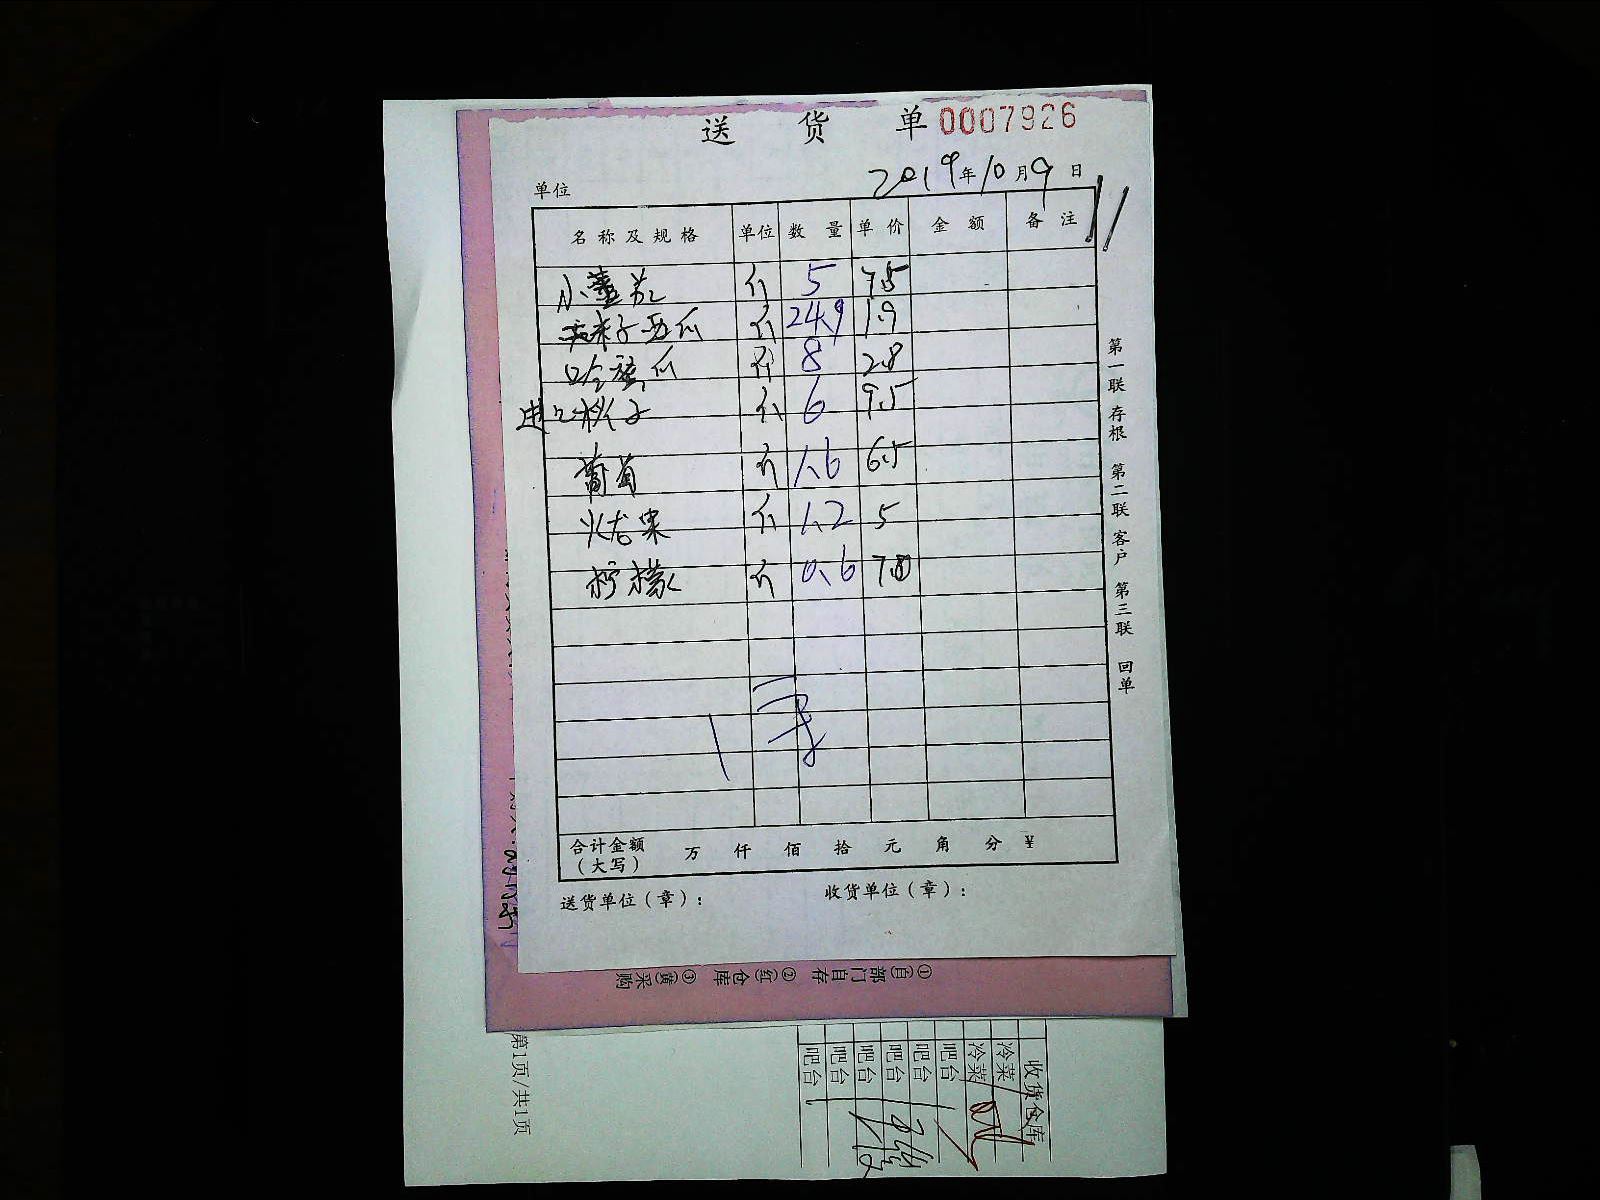 送 货 单 0007926
单位 2019年10月9日
名称及规格 单位 数量 单价 金额 备注
小番茄 斤 5 7.5
无籽西瓜 斤 24.9 1.9
哈密瓜 斤 8 2.8
进口橙子 斤 6 9.5
葡萄 斤 1.6 6.5
火龙果 斤 1.2 5
柠檬 斤 0.6
合计金额 万 仟 佰 拾 元 角 分 ¥
（大写）
送货单位（章）： 收货单位（章）：
第一联 存根 第二联 客户 第三联 回单
①(白)部门自存 ②(红)仓库 ③(黄)采购
收货仓库
冷菜
冷菜
吧台
吧台
吧台
吧台
吧台
吧台
第1页/共1页